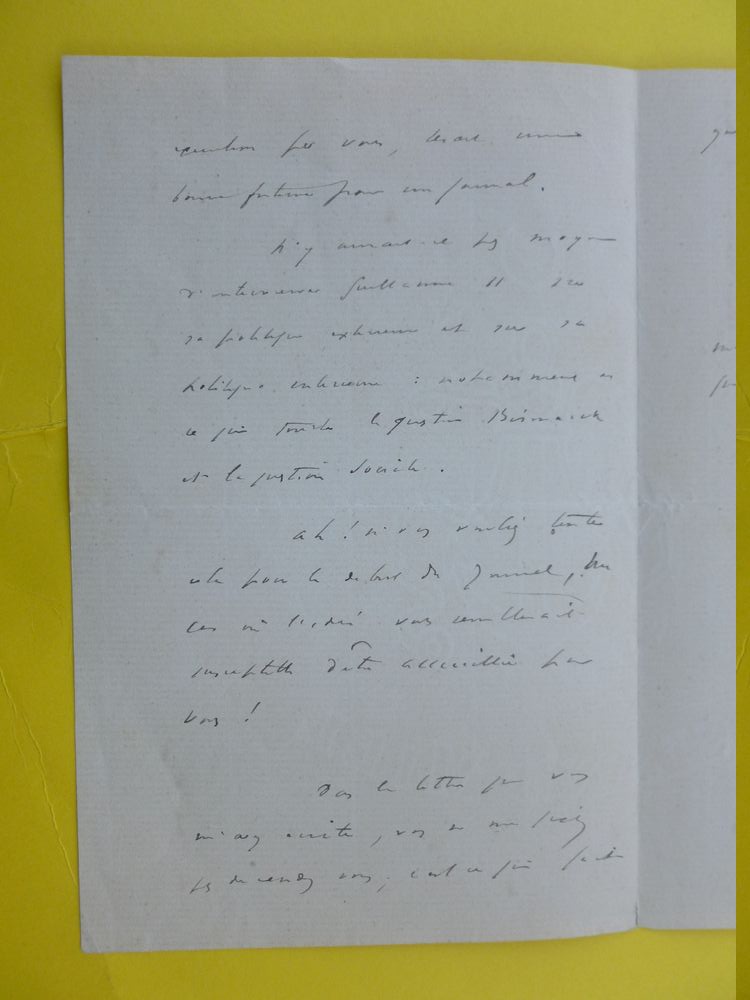 par vous, serait une
bonne fortune pour un journal.
N'y aurait-il pas moyen
d'interviewer Guillaume II sur
sa politique extérieure et sur sa
politique intérieure : notamment en
ce qui touche la question Bismarck
et la question sociale.
Ah ! si vous vouliez tenter
cela pour le début du Journal, au
cas où l'idée vous semblerait
susceptible d'être accueillie par
vous !
Dans la lettre que vous
m'avez écrite, vous ne me
pas rendez vous, c'est ce qui fait